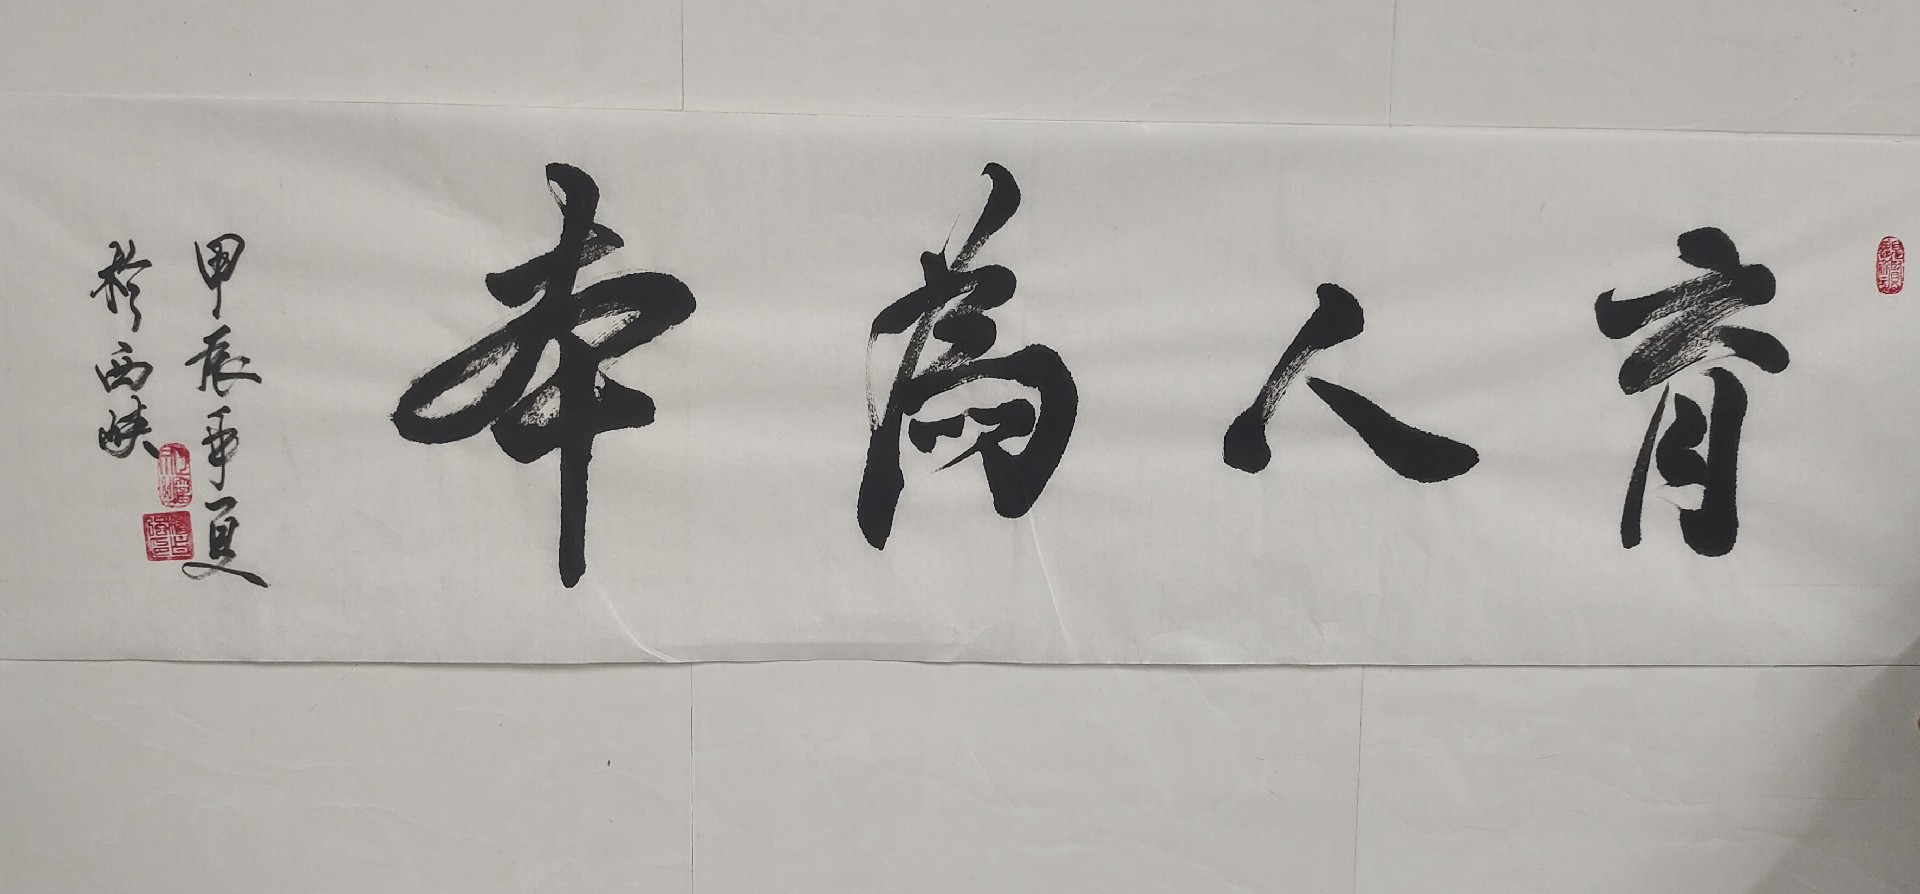 育人為本
甲辰年夏
於西峽